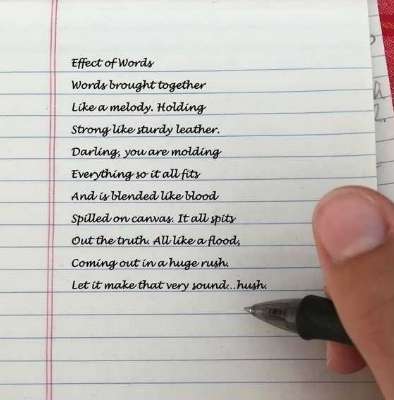 Effect of Words
Words brought together
Like a melody. Holding
Strong like sturdy leather.
Darling, you are molding
Everything so it all fits
And is blended like blood
Spilled on canvas. It all spits
Out the truth. All like a flood,
Coming out in a huge rush.
Let it make that very sound...hush.